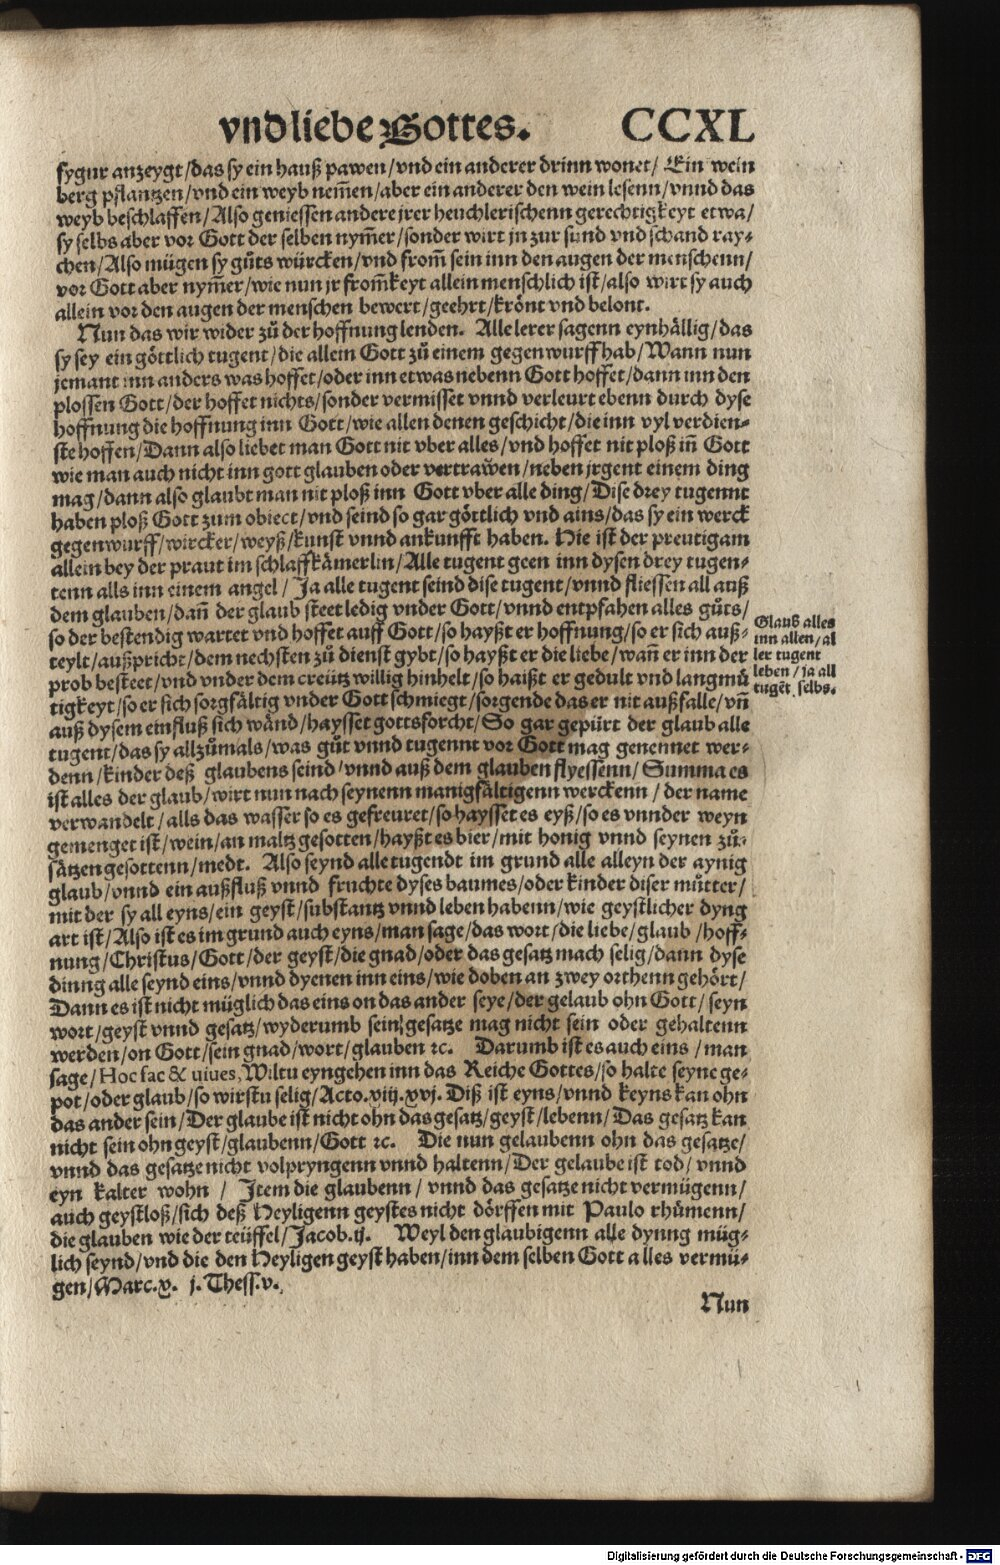 vnd liebe Gottes. CCXL
fygur anzeygt/das sy ein hauß pawen/vnd ein anderer drinn wonet/ Ein wein
berg pflantzen/vnd ein weyb nem̃en/aber ein anderer den wein lesenn/vnnd das
weyb beschlaffen/Also geniessen andere jrer heuchlerischenn gerechtigkeyt etwa/
sy selbs aber vor Gott der selben nym̃er/sonder wirt jn zur sund vnd schand ray⸗
chen/Also mügen sy gůts würcken/vnd from̃ sein inn den augen der menschenn/
vor Gott aber nym̃er/wie nun jr from̃keyt allein menschlich ist/also wirt sy auch
allein vor den augen der menschen bewert/geehrt/krönt vnd belont.
Nun das wir wider zů der hoffnung lenden. Alle lerer sagenn eynhällig/das
sy sey ein göttlich tugent/die allein Gott zů einem gegenwurff hab/Wann nun
jemant inn anders was hoffet/oder inn etwas nebenn Gott hoffet/dann inn den
plossen Gott/der hoffet nichts/sonder vermisset vnnd verleurt ebenn durch dyse
hoffnung die hoffnung inn Gott/wie allen denen geschicht/die inn vyl verdien⸗
ste hoffen/Dann also liebet man Gott nit vber alles/vnd hoffet nit ploß iñ Gott
wie man auch nicht inn gott glauben oder vertrawen/neben jrgent einem ding
mag/dann also glaubt man nit ploß inn Gott vber alle ding/Dise drey tugennt
haben ploß Gott zum obiect/vnd seind so gar göttlich vnd ains/das sy ein werck
gegenwurff/wircker/weyß/kunst vnnd ankunfft haben. Hie ist der preutigam
allein bey der praut im schlaffkämerlin/Alle tugent geen inn dysen drey tugen⸗
tenn alls inn einem angel/ Ja alle tugent seind dise tugent/vnnd fliessen all auß
dem glauben/dañ der glaub steet ledig vnder Gott/vnnd entpfahen alles gůts/
so der bestendig wartet vnd hoffet auff Gott/so hayßt er hoffnung/so er sich auß⸗
teylt/außpricht/dem nechsten zů dienst gybt/so hayßt er die liebe/wañ er inn der
prob besteet/vnd vnder dem creütz willig hinhelt/so haißt er gedult vnd langmů
tigkeyt/so er sich sorgfältig vnder Gott schmiegt/sorgende das er nit außfalle/vñ
auß dysem einfluß sich wänd/haysset gottsforcht/So gar gepürt der glaub alle
tugent/das sy allzůmals/was gůt vnnd tugennt vor Gott mag genennet wer⸗
denn/kinder deß glaubens seind/vnnd auß dem glauben flyessenn/Summa es
ist alles der glaub/wirt nun nach seynenn manigfältigenn werckenn/der name
verwandelt/alls das wasser so es gefreuret/so haysset es eyß/so es vnnder weyn
gemenget ist/wein/an maltz gesotten/hayßt es bier/mit honig vnnd seynen zů⸗
sätzen gesottenn/medt. Also seynd alle tugendt im grund alle alleyn der aynig
glaub/vnnd ein außfluß vnnd fruchte dyses baumes/oder kinder diser můtter/
mit der sy all eyns/ein geyst/substantz vnnd leben habenn/wie geystlicher dyng
art ist/Also ist es im grund auch eyns/man sage/das wort/die liebe/glaub/hoff⸗
nung/Christus/Gott/der geyst/die gnad/oder das gesatz mach selig/dann dyse
dinng alle seynd eins/vnnd dyenen inn eins/wie doben an zwey orthenn gehört/
Dann es ist nicht müglich das eins on das ander seye/der gelaub ohn Gott/seyn
wort/geyst vnnd gesatz/wyderumb sein gesatze mag nicht sein oder gehaltenn
werden/on Gott/sein gnad/wort/glauben ꝛc. Darumb ist es auch eins/man
sage/Hoc fac & uiues, Wiltu eyngehen inn das Reiche Gottes/so halte seyne ge⸗
pot/oder glaub/so wirstu selig/Acto.viij.xvj. Diß ist eyns/vnnd keyns kan ohn
das ander sein/Der glaube ist nicht ohn das gesatz/geyst/lebenn/Das gesatz kan
nicht sein ohn geyst/glaubenn/Gott ꝛc. Die nun gelaubenn ohn das gesatze/
vnnd das gesatze nicht volpryngenn vnnd haltenn/Der gelaube ist tod/vnnd
eyn kalter wohn/ Item die glaubenn/vnnd das gesatze nicht vermügenn/
auch geystloß/sich deß Heyligenn geystes nicht dörffen mit Paulo rhůmenn/
die glauben wie der teüffel/Jacob.ij. Weyl den glaubigenn alle dynng müg⸗
lich seynd/vnd die den Heyligen geyst haben/inn dem selben Gott alles vermü⸗
gen/Marc.x. j.Thess.v.
Nun
Glaub alles
inn allen/al
ler tugent
leben/ja all
tugẽt selbs.
Digitalisierung gefördert durch die Deutsche Forschungsgemeinschaft - DFG